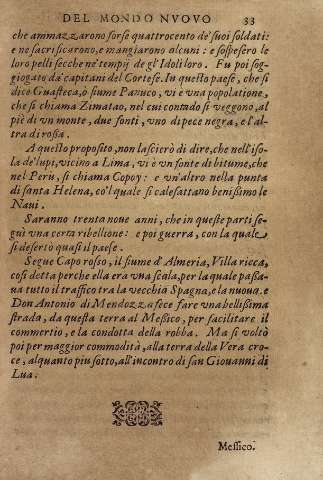 DEL MONDO NVOVO 33
che ammazzarono forse quattrocento de' suoi soldati:
e ne sacrificarono, e mangiarono alcuni: e sospesero le
loro pelli secche ne' tempij de gl'Idoli loro. Fu poi sog-
giogato da' capitani del Cortese. In questo paese, che si
dice Guasteca, o fiume Panuco, vi è vna popolatione,
che si chiama Zimatao, nel cui contado si veggono, al
piè di vn monte, due fonti, vno di pece negra, e l'al-
tra di rossa.
A questo proposito, non lascirò di dire, che nell'iso-
la de' lupi, vicino a Lima, vi è vn fonte di bitume, che
nel Perù, si chiama Copoy: e vn'altro nella punta
di santa Helena, co'l quale si calefattano benissimo le
Naui.
Saranno trenta noue anni, che in queste parti se-
guì vna certa ribellione: e poi guerra, con la quale
si desertò quasi il paese.
Segue Capo rosso, il fiume d'Almeria, Villa ricca,
così detta perche ella era vna scala, per la quale passa-
ua tutto il traffico tra la vecchia Spagna, e la nouа. e
Don Antonio di Mendozza fece fare vna bellissima
strada, da questa terra al Messico, per facilitare il
commertio, e la condotta della robba. Ma si voltò
poi per maggior commodità, alla terra della Vera cro-
ce, alquanto piu sotto, all'incontro di san Giouanni di
Lua.
Messico.